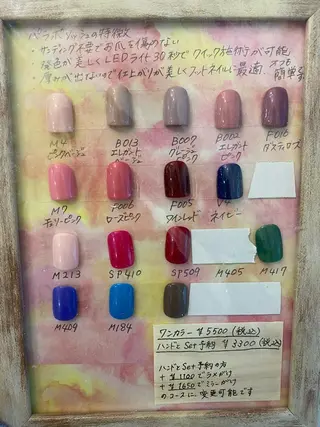 パラポリッシュの特徴
・サンディング不要でお爪を傷めない
・発色が美しくLEDライト30秒でクイック施術が可能
・厚みが出ないので仕上がりが美しくフットネイルに最適 オフも簡単
M4 B013 B007 B002 F016
ピンクベージュ エレガントベージュ グレージュピンク エレガントピンク ダスティローズ
M7 F006 F005 V4
チェリーピンク ローズピンク ワインレッド ネイビー
M213 SP410 SP509 M405 M417
M409 M184
ワンカラー ¥5500(税込)
ハンドとSet予約 ¥3300(税込)
ハンドとSet予約の方
+¥1100でラメがけ
+¥1650でミラーがけ
のコースに変更可能です